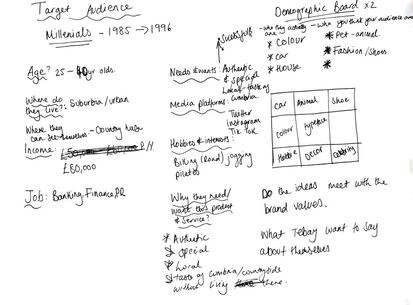 Target Audience
Millenials - 1985 → 1996
Age? 25 - 40 year olds.
Where do they live?: Suburbia/urban
Where they can see themselves - Country
Income:
£80,000
Job: Banking, Finance, PR
successful
Needs & wants: Authentic & special
Local - taste of Cumbria
Media platforms:
Twitter
instagram
Tik Tok
Hobbies & interests:
Biking (Road) jogging
pilates
Why they need/
want this product
& Service?
* Authentic
* Special
* Local
* taste of cumbria/countryside
without living there.
Demographic Board x2
- who they actually are - who you think your audience are
* Colour
* Car
* House
* Pet - animal.
* Fashion/Shoes
*
Car Animal Shoe
colour typeface
Hobbie Decor Celebrity
Do the ideas meet with the
brand values.
What Tebay want to say
about themselves